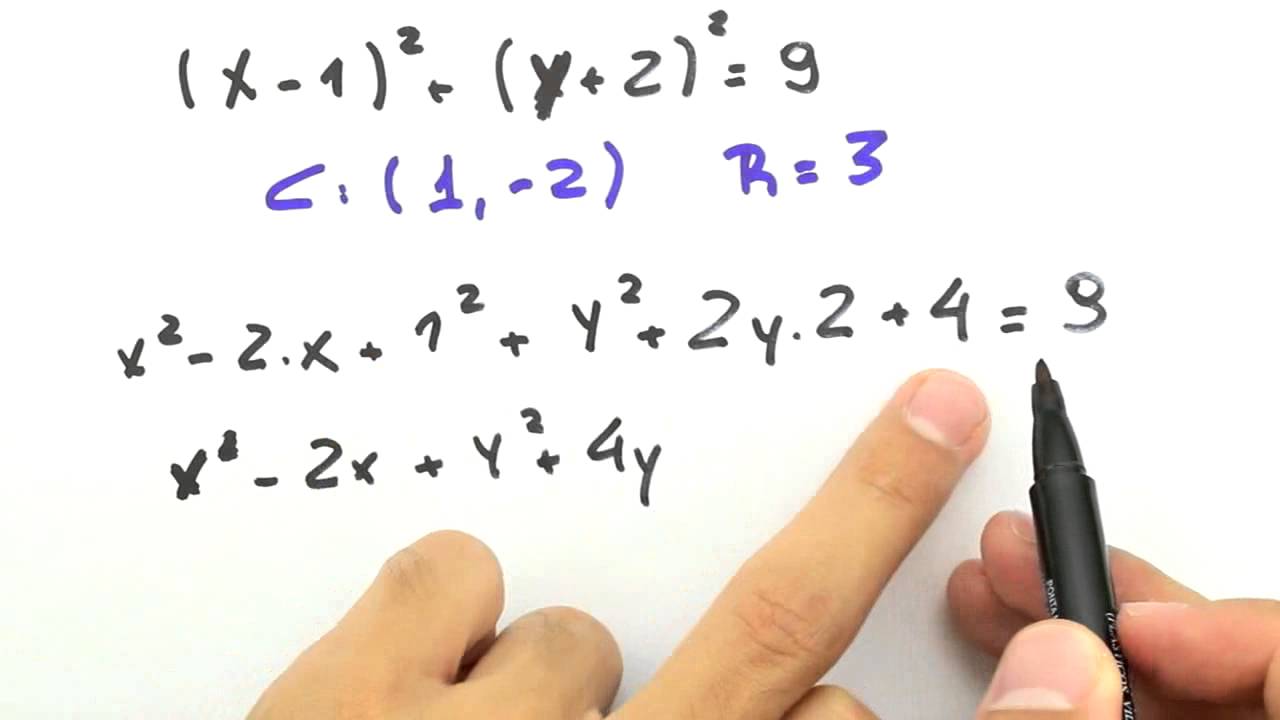 (x - 1)² + (y + 2)² = 9
C: (1, -2) R = 3
x² - 2.x + 1² + y² + 2y.2 + 4 = 9
x² - 2x + y² + 4y